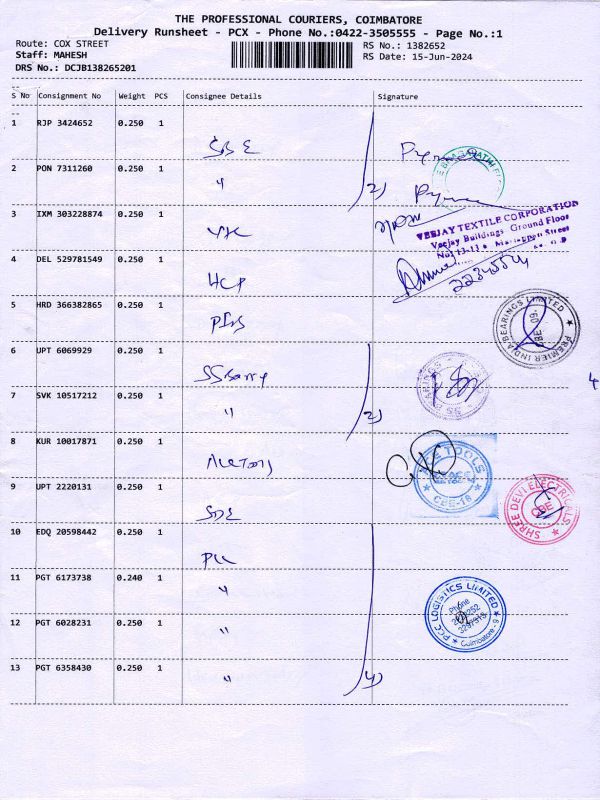 THE PROFESSIONAL COURIERS, COIMBATORE
Delivery Runsheet - PCX - Phone No.:0422-3505555 - Page No.:1
Route: COX STREET RS No.: 1382652
Staff: MAHESH RS Date: 15-Jun-2024
DRS No.: DCJB138265201
S No Consignment No Weight PCS Consignee Details Signature
1 RJP 3424652 0.250 1
SBE
2 PON 7311260 0.250 1
" 2)
3 IXM 303228874 0.250 1
VEEJAY TEXTILE CORPORATION
Veejay Buildings Ground Floor
Street
4 DEL 529781549 0.250 1
HCP
5 HRD 366382865 0.250 1
PREMIER INDIA BEARINGS LIMITED
6 UPT 6069929 0.250 1
7 SVK 10517212 0.250 1
" 2)
4
8 KUR 10017871 0.250 1
TOOLS
CBE-18
9 UPT 2220131 0.250 1
SDE
SHREE DEVI ELECTRICALS
CBE
10 EDQ 20598442 0.250 1
11 PGT 6173738 0.240 1
"
PCC LOGISTICS LIMITED
Phone
Coimbatore
12 PGT 6028231 0.250 1
"
13 PGT 6358430 0.250 1
" 4)